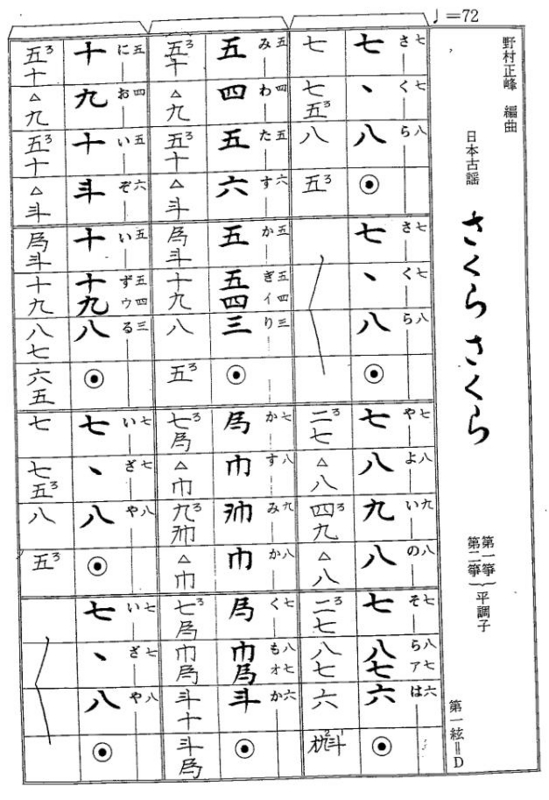 ♩=72
野村正峰 編曲
日本古謡
さくらさくら
第一箏
第二箏
平調子
第一絃＝D
七七八七七八七八九八七八七六
さくらさくらやよいのそらァは
七、八◉七、八◉七八九八七八七六◉
七七五³八五³二³七△八四³九△八二³七八七六
五四五六五五四三七八九八七八七六
みわたすかぎィりかすみかくもォか
五四五六五五四三◉為巾巾為巾為斗◉
五³十△九五³十△斗為斗十九八五³七³為△巾九³△巾七³為巾為斗十斗為
五四五六五五四三七七八七七八
においぞいずゥるいざやいざや
十九十斗十十九八◉七、八◉七、八◉
五³十△九五³十△斗為斗十九八七六五七七五³八五³